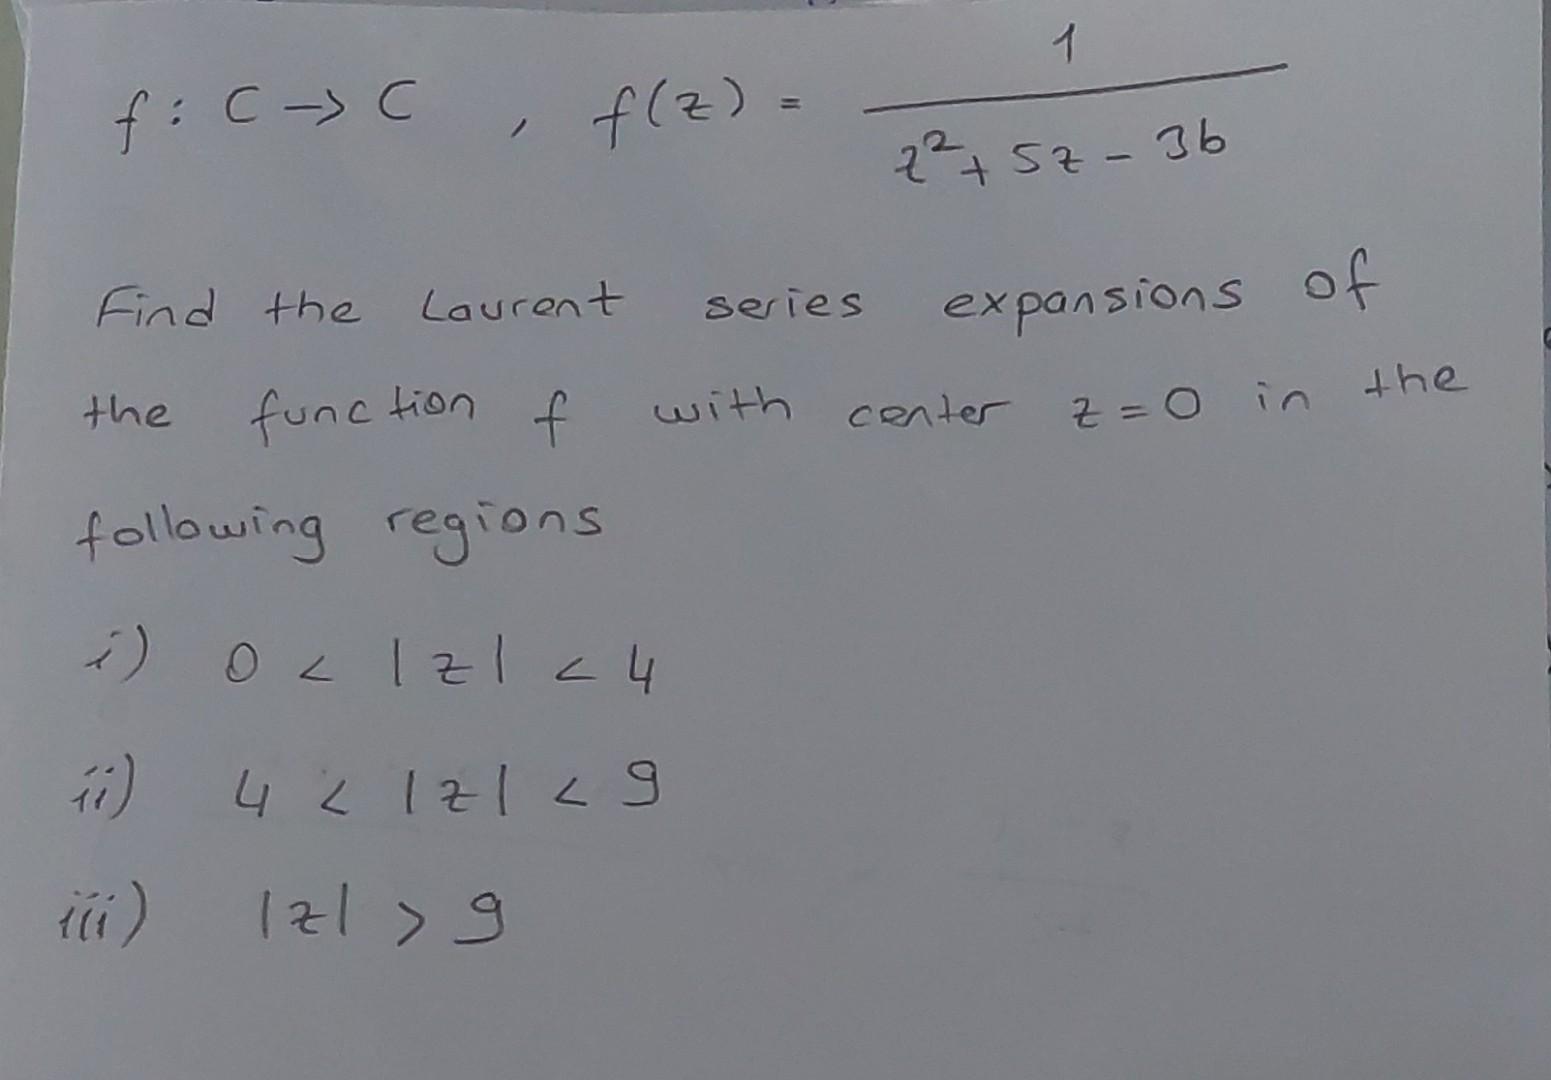 f: C → C , f(z) = 1 / (z² + 5z - 36)
Find the Laurent series expansions of
the function f with center z = 0 in the
following regions
i) 0 < |z| < 4
ii) 4 < |z| < 9
iii) |z| > 9